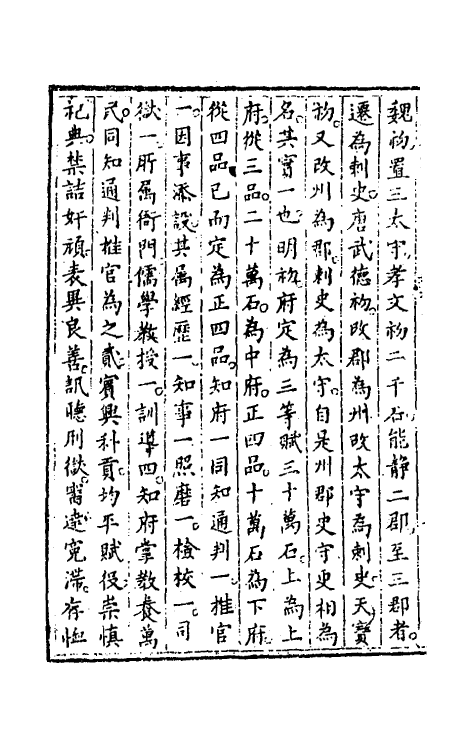 魏初置三太守孝文初二千石能静二郡至三郡者
遷為刺史唐武德初改郡為州改太守為刺史天寶
初又改州為郡刺史為太守自是州郡史守更相為
名其實一也明初府定為三等賦三十萬石上為上
府從三品二十萬石為中府正四品十萬石為下府
從四品已而定為正四品知府一同知通判一推官
一因事添設其属經歷一知事一照磨一檢校一司
獄一所属衙門儒學教授一訓導四知府掌教養萬
民同知通判推官為之貳賓興科貢均平賦役崇慎
祀典禁詰奸頑表異良善訊聽刑獄甯達冤滞存恤